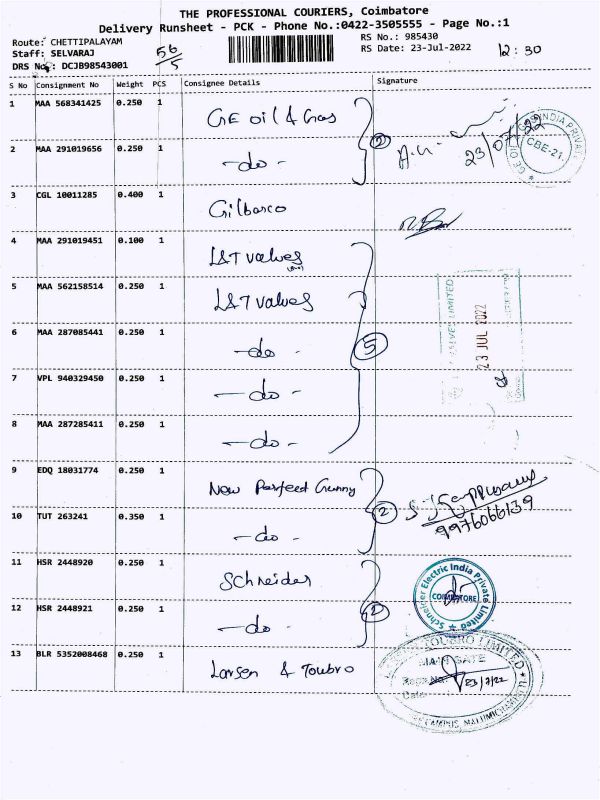 THE PROFESSIONAL COURIERS, Coimbatore
Delivery Runsheet - PCK - Phone No.:0422-3505555 - Page No.:1
Route: CHETTIPALAYAM
RS No.: 985430
Staff: SELVARAJ
56/5
RS Date: 23-Jul-2022
12:30
DRS No.: DCJB98543001
S No Consignment No Weight PCS Consignee Details Signature
1 MAA 568341425 0.250 1 GE oil & Gas
2 MAA 291019656 0.250 1 -do- 2 23/07/22
GE OIL GAS INDIA PRIVATE CBE-21.
3 CGL 10011285 0.400 1 Gilbarco
4 MAA 291019451 0.100 1 L&T valves
5 MAA 562158514 0.250 1 L&T valves
VALVES LIMITED
23 JUL 2022
6 MAA 287085441 0.250 1 -do- 5
7 VPL 940329450 0.250 1 -do-
8 MAA 287285411 0.250 1 -do-
9 EDQ 18031774 0.250 1 New Perfect Gunny
2
9976066139
10 TUT 263241 0.350 1 -do-
11 HSR 2448920 0.250 1 Schneider
Schneider Electric India Private Limited
COIMBATORE
12 HSR 2448921 0.250 1 -do- 2
13 BLR 5352008468 0.250 1 Larsen & Toubro
TOUBRO LIMITED
MAIN GATE
23/7/22
Date
CAMPUS, MALUMICHAM